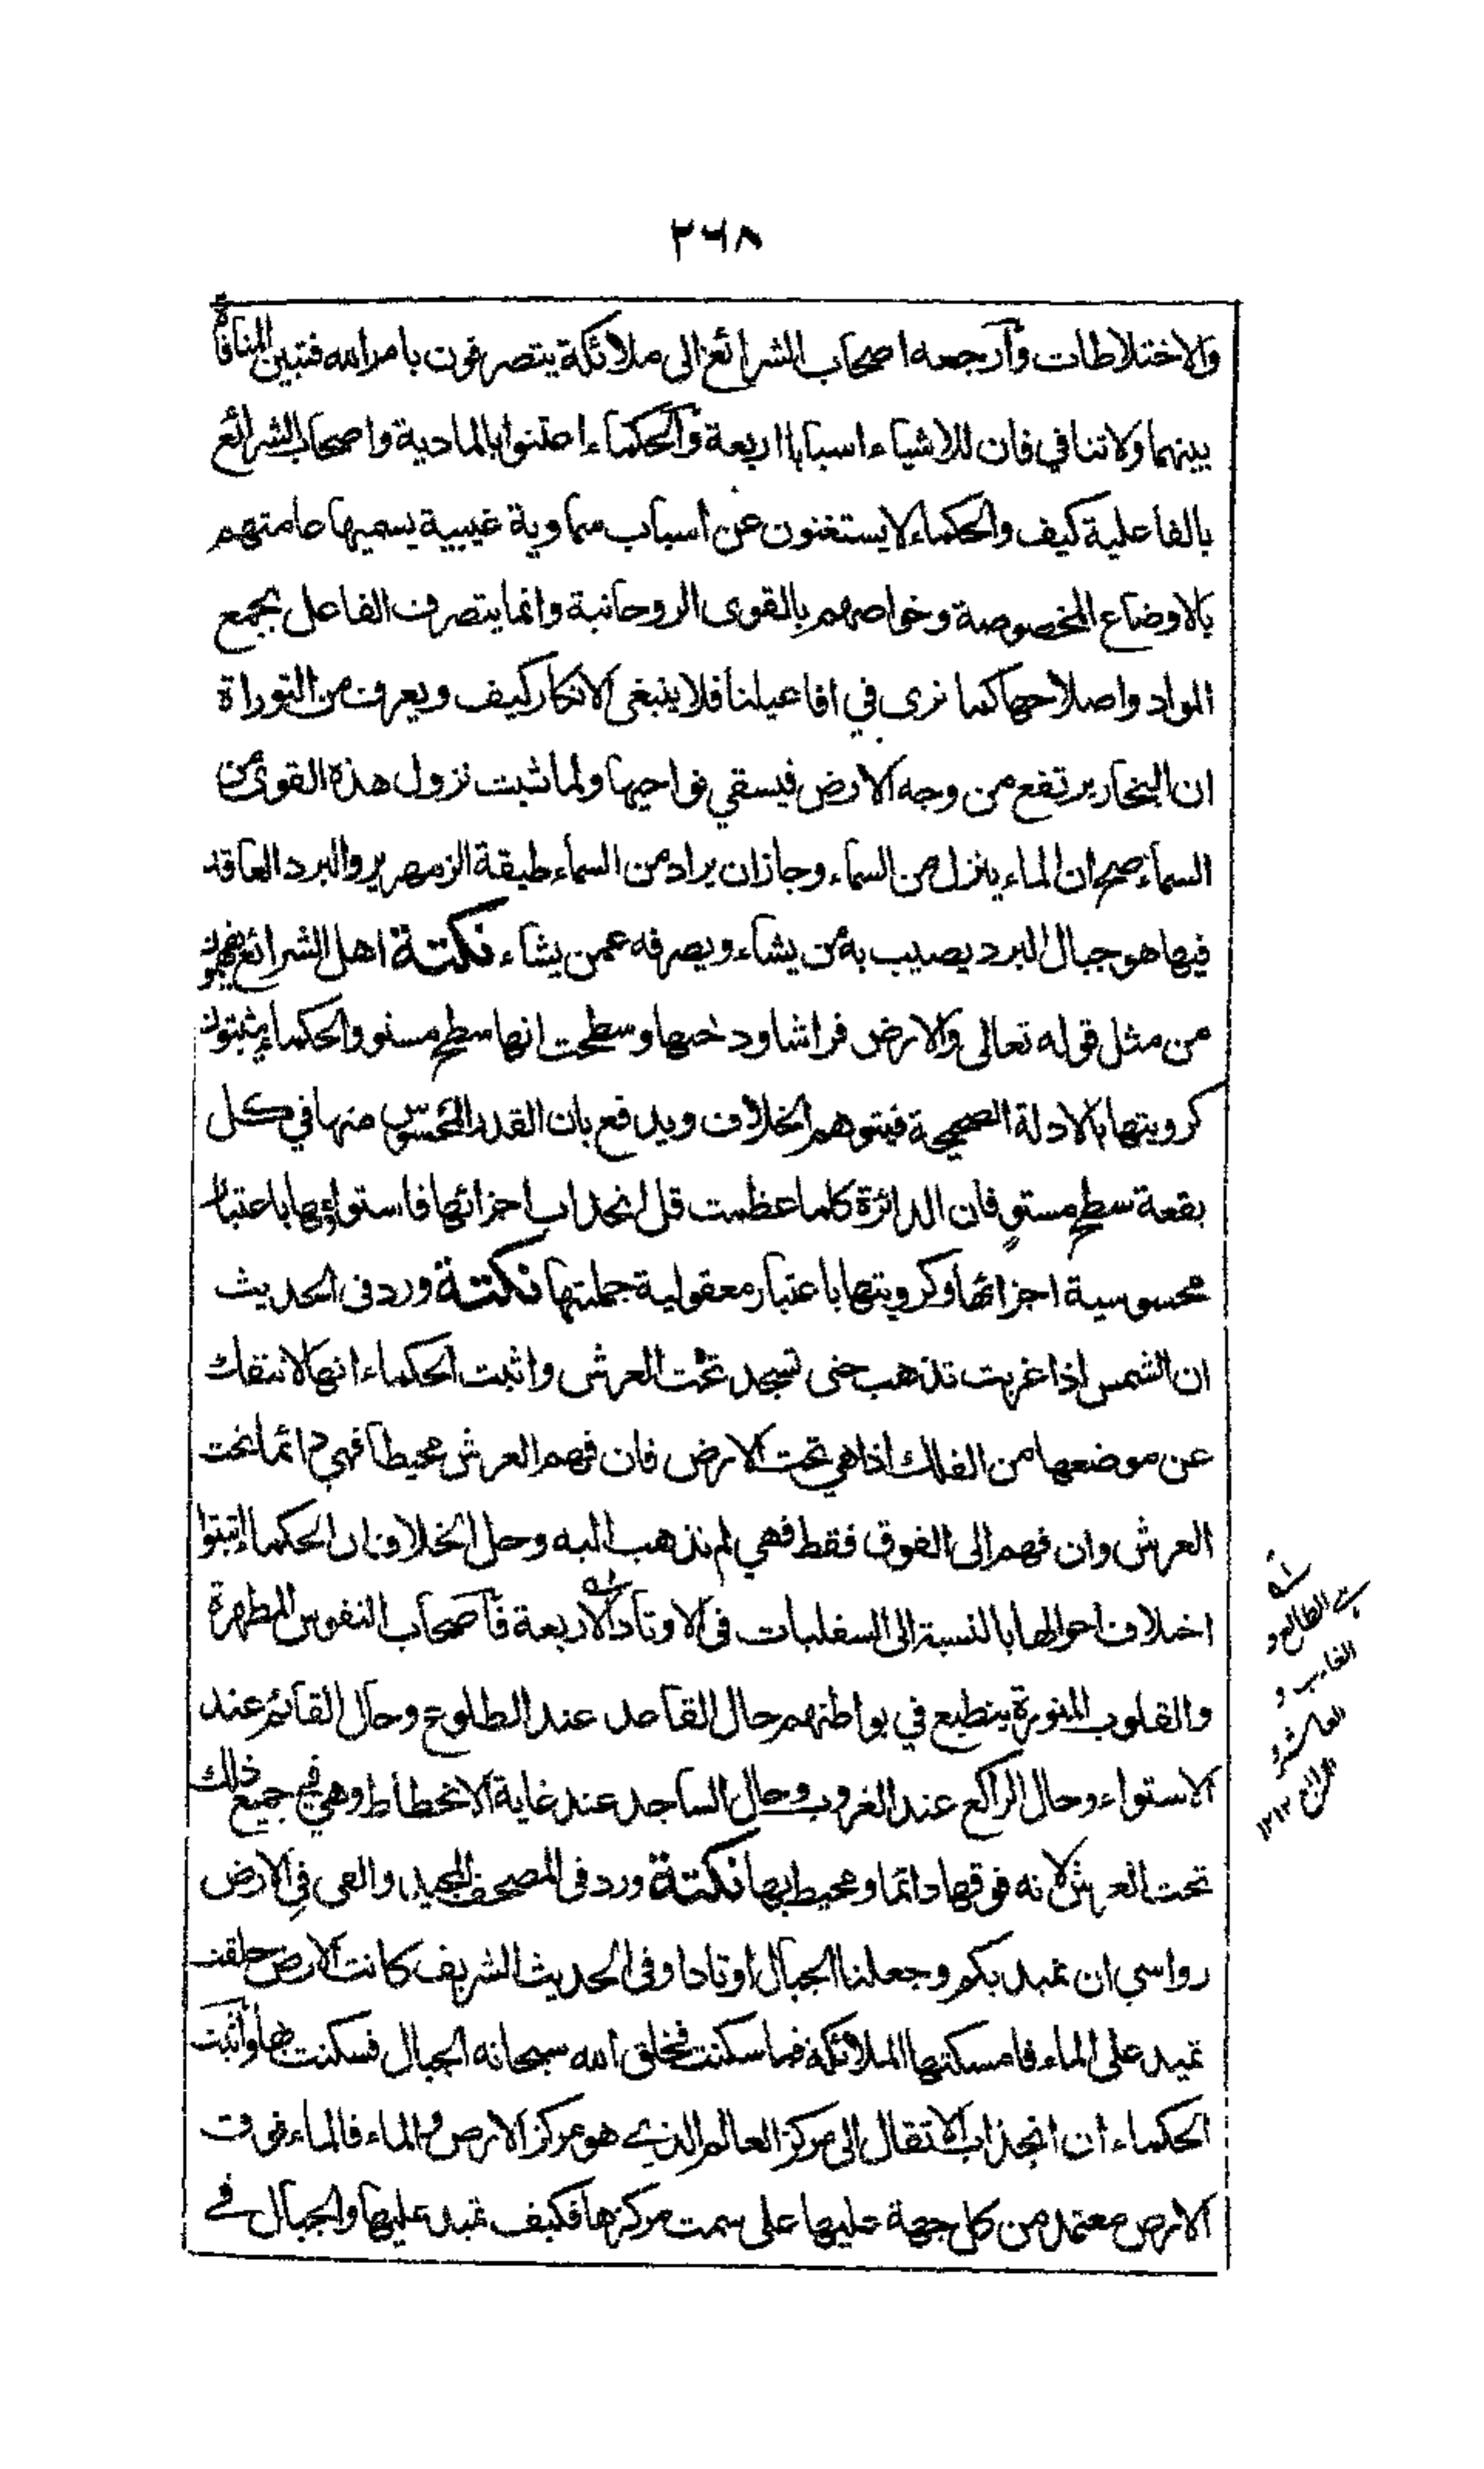 ٢٦٨
والاختلاطات وارجعه اصحاب الشرائع الى ملائكة يتصرفون بامر الله فتبين المنافاة
بينهما ولا تنافي فان للاشياء اسبابا اربعة والحكماء اعتنوا بالمادية واصحاب الشرائع
بالفاعلية كيف والحكماء لا يستغنون عن اسباب سماوية غيبية يسميها عامتهم
بالاوضاع المخصوصة وخواصهم بالقوى الروحانية وانما يتصرف الفاعل بجمع
المواد واصلاحها كما نرى في افاعيلنا فلا ينبغى الانكار كيف ويعرف من التوراة
ان البخار يرتفع من وجه الارض فيسقي نواحيها ولما ثبت نزول هذه القوى من
السماء صح ان الماء ينزل من السماء وجاز ان يراد من السماء طبقة الزمهرير والبرد العاقد
فيها هو جبال البرد يصيب به من يشاء ويصرفه عمن يشاء نكتة اهل الشرائع يفهمون
من مثل قوله تعالى والارض فراشا ودحيها وسطحت انها سطح مستو والحكماء يثبتون
كرويتها بالادلة الصحيحة فيتوهم الخلاف ويدفع بان القدر المحسوس منها في كل
بقعة سطح مستوٍ فان الدائرة كلما عظمت قل انحداب اجزائها فاستواؤها باعتبار
محسوسية اجزائها وكرويتها باعتبار معقولية جملتها نكتة ورد فى الحديث
ان الشمس اذا غربت تذهب حتى تسجد تحت العرش واثبت الحكماء انها لا تنفك
عن موضعها من الفلك اذا هي تحت الارض فان فهم العرش محيطا فهي دائما تحت
العرش وان فهم الى الفوق فقط فهي لم تذهب اليه وحل الخلاف ان الحكماء اثبتوا
اختلاف احوالها بالنسبة الى السفليات فى الاوتاد الاربعة فاصحاب النفوس المطهرة
والقلوب المنورة ينطبع في بواطنهم حال القاعد عند الطلوع وحال القائم عند
الاستواء وحال الراكع عند الغروب وحال الساجد عند غاية الانحطاط وهي في جميع ذلك
تحت العرش لانه فوقها دائما ومحيط بها نكتة ورد فى المصحف المجيد والقى فى الارض
رواسي ان تميد بكم وجعلنا الجبال اوتادا وفى الحديث الشريف كانت الارض خلقت
تميد على الماء فامسكتها الملائكة فما سكنت فخلق الله سبحانه الجبال فسكنت بها واثبت
الحكماء ان انجذاب الاثقال الى مركز العالم الذي هو مركز الارض والماء فالماء فوق
الارض معتمد من كل جهة عليها على سمت مركزها فكيف تميد عليها والجبال في
اے الطالع و
الغارب و
العاشر و
الرابع ١٢